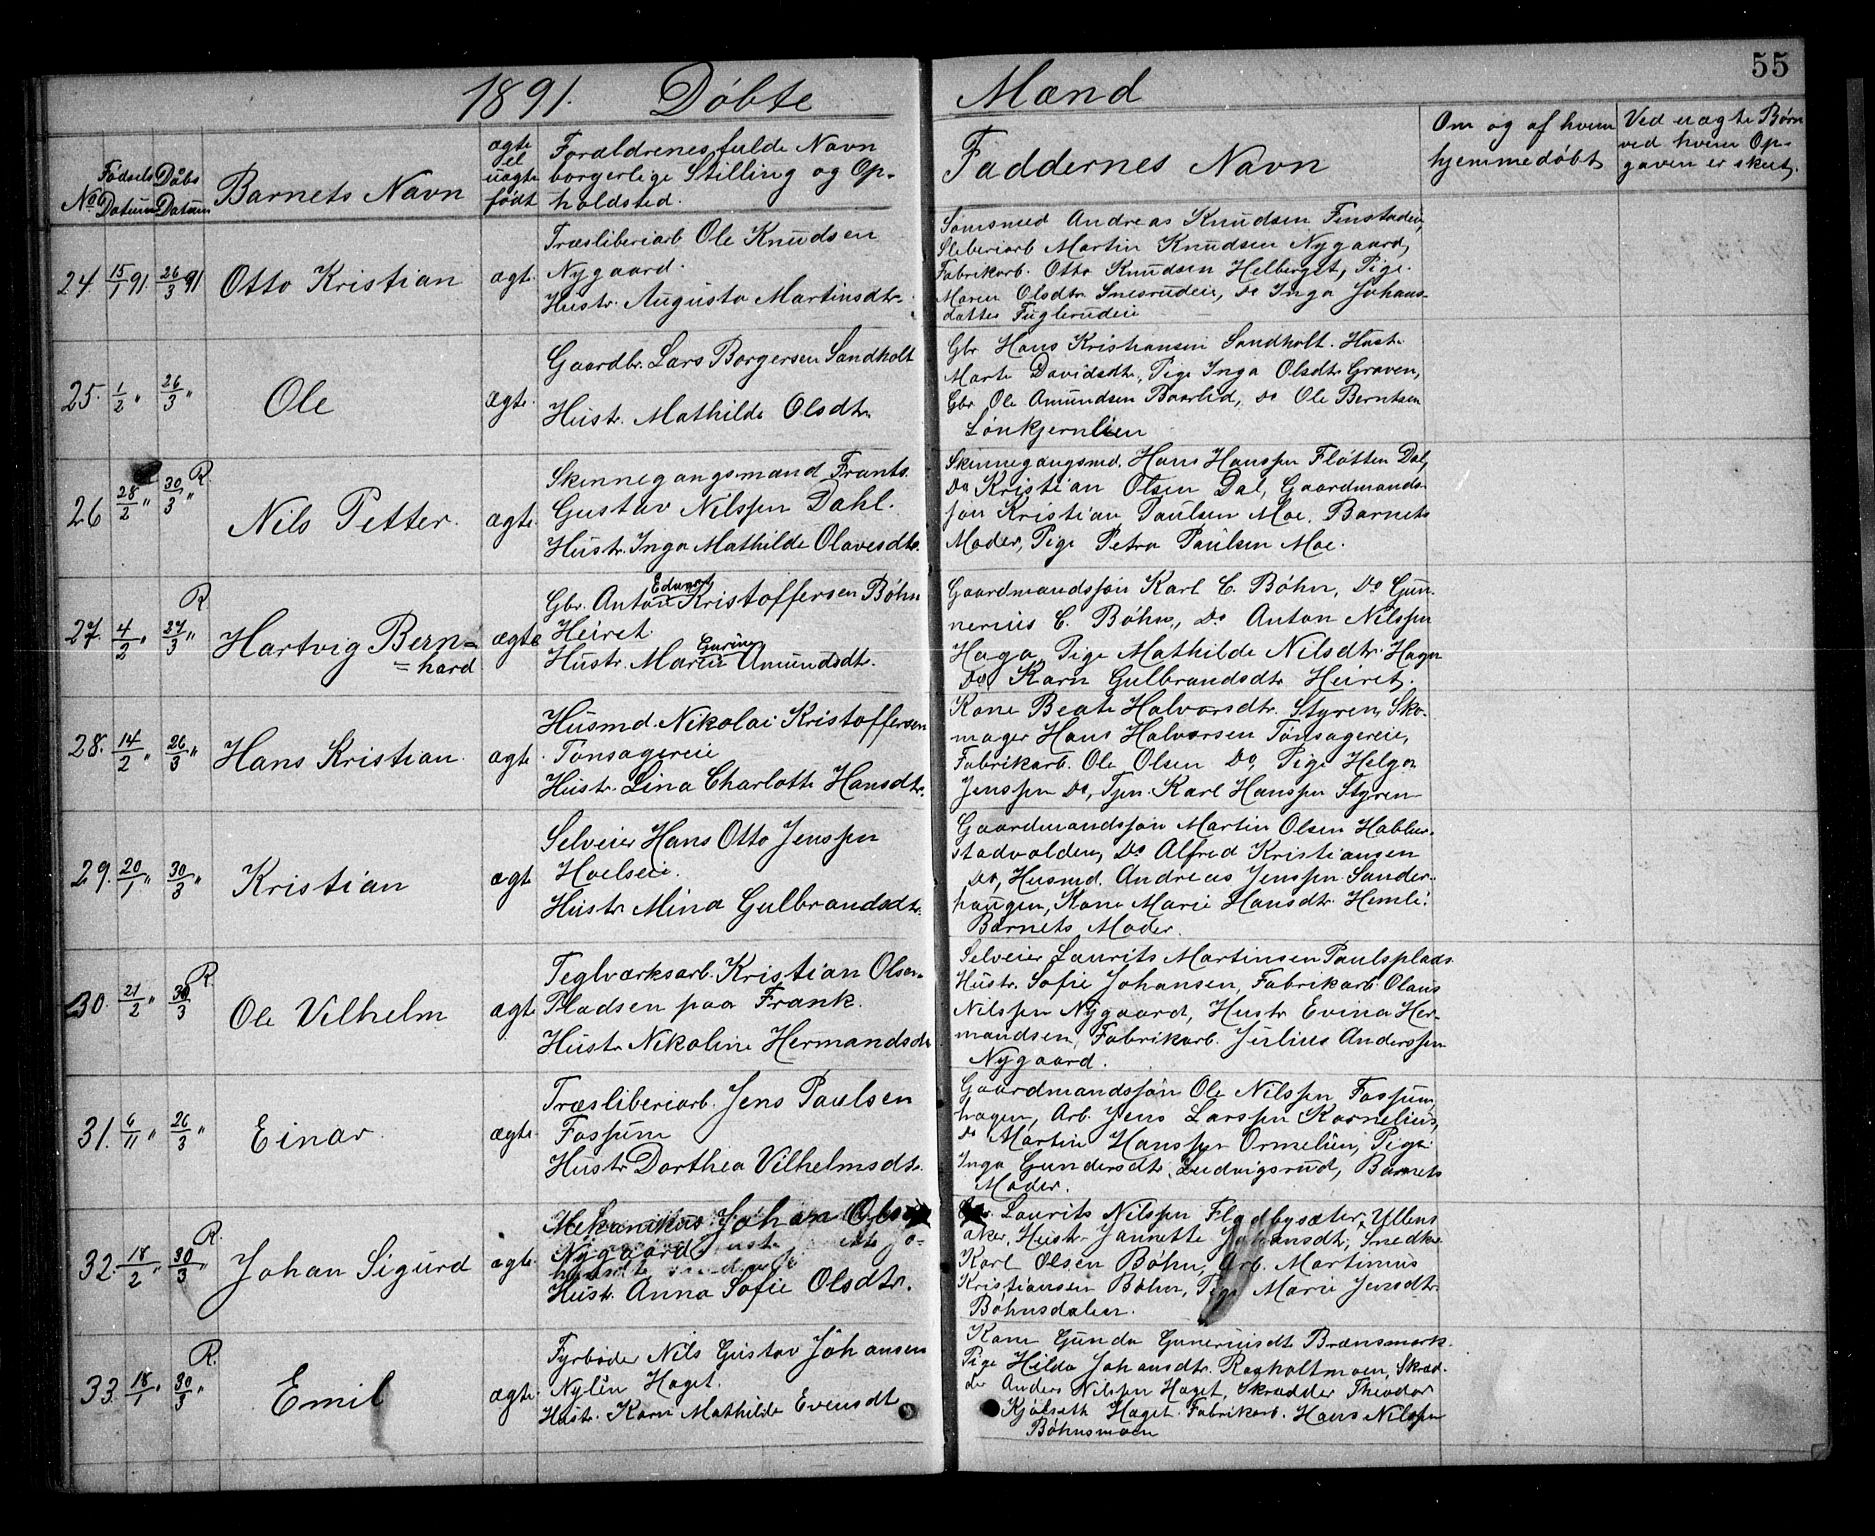 55
1891. Døbte Mænd
No
Fødsels Datum
Døbs Datum
Barnets Navn
ægte el uægte født
Forældrenes fulde Navn
borgerlige Stilling og Op-
holdsted.
Faddernes Navn
Om og af hvem
hjemmedøbt
Ved uægte Børn
ved hvem Op-
gaven er skeet.
24 15/1 91 26/3 91 Otto Kristian ægte
Træsliberiarb Ole Knudsen
Nygaard.
Hustr. Augusta Martinsdtr.
Andreas Knudsen Finstadeie,
Sliberiarb Martin Knudsen Nygaard,
Fabrikarb. Otto Knudsen Helberget, Pige
Maren Olsdtr. Snesrudeie, Do Inga Johans-
datter Fuglerudeie
25. 1/2 " 26/3 " Ole ægte.
Gaardbr. Lars Borgersen Sandholt
Hustr. Mathilde Olsdtr.
Gbr Hans Kristiansen Sandholt. Hustr
Marte Davidsdtr, Pige Inga Olsdtr Graven,
Gbr Ole Amundsen Baarlid, Do Ole Berntsen
Lønkjernlien
26 28/2 " 30/3 " R. Nils Petter. ægte.
Skinnegangsmand Frants
Gustav Nilssen Dahl.
Hustr. Inga Mathilde Olavesdtr.
Skinnegangsmd. Hans Hanssen Fløtten Dal,
Do Kristian Olsen Dal, Gaardmands-
søn Kristian Paulsen Moe. Barnets
Moder, Pige Petra Paulsen Moe.
27. 4/2 " 27/3 " R Hartvig Bern=
=hard ægte
Edvart
Gbr. Anton Kristoffersen Bøhn
Heiret.
Gurine
Hustr. Maren Amundsdtr.
Gaardmandssøn Karl C. Bøhn, Do Gun-
nerius C. Bøhn, Do Anton Nilssen
Haga Pige Mathilde Nilsdtr. Haga
Do, Karn Gulbrandsdtr Heiret.
28. 14/2 " 26/3 " Hans Kristian. ægte
Husmd. Nikolai Kristoffersen
Tonsagereie
Hustr. Lina Charlotte Hansdtr.
Kone Beate Halvorsdtr. Styren, Sko-
mager Hans Halvorsen Tonsagereie,
Fabrikarb. Ole Olsen Do, Pige Helga
Jenssen Do, Tjen. Karl Hanssen Styren
29. 20/1 " 30/3 " Kristian ægte
Selveier Hans Otto Jenssen
Hoelseie.
Hustr Mina Gulbrandsdtr.
Gaardmandssøn Martin Olsen Habber-
stadvolden, Do Alfred Kristiansen
Do, Husmd. Andreas Jenssen Sander-
haugen, Kone Marie Hansdtr Himli.
Barnets Moder.
30. 21/2 " 30/3 R. Ole Vilhelm ægte
Teglværksarb. Kristian Olsen
Pladsen paa Frank.
Hustr Nikoline Hermandsdtr
Selveier Laurits Martinsen Paulsplads
Hustr. Sofie Johansen, Fabrikarb. Olaus
Nilssen Nygaard, Hustr Evina Her-
mandsen, Fabrikarb. Julius Anderssen
Nygaard.
31. 6/11 " 26/3 " Einar. ægte.
Træsliberiarb. Jens Paulsen
Fossum
Hustr Dorthea Vilhelmsdtr.
Gaardmandssøn Ole Nilssen Fossum,
hagen, Arb. Jens Larssen Kornelius,
Do Martin Hanssen Ormelien, Pige
Inga Gundersdtr. Ludvigsrud, Barnets
Moder.
32. 18/2 " 30/3 " R. Johan Sigurd ægte.
Mekanikus Johan Olsen
Nygaard
Hustr. Anna Sofie Olsdtr.
Laurits Nilssen Fladbysæter, Ullens
aker, Hustr Jannette Johansdtr, Snedker
Karl Olsen Bøhn, Arb. Martinius
Kristiansen Bøhn, Pige Marie Jensdtr
Bøhnsdalen.
33. 18/1 " 30/3 " R. Emil ægte.
Fyrbøder Nils Gustav Johansen
Nylén Haget.
Hustr. Karn Mathilde Evensdt
Kone Gunda Guneriusdt Brænsmork.
Pige Hilda Johansdtr. Rogholtmoen, Skræd-
der Anders Nilssen Haget, Skrædder Theodor
Kjølseth Haget. Fabrikarb. Hans Nilssen
Bøhnsmoen